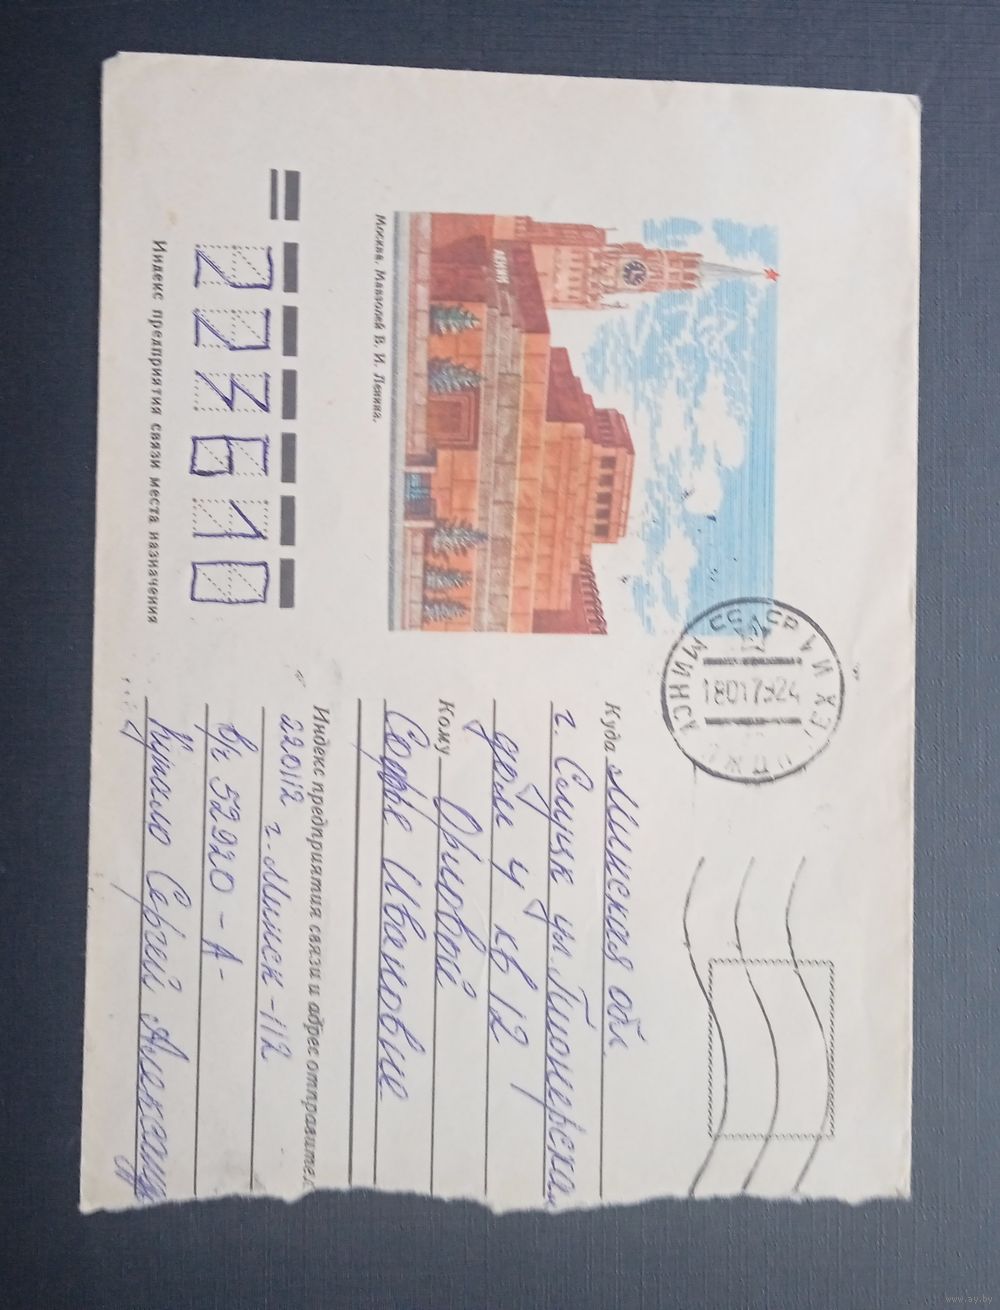 ЛЕНИН
Москва. Мавзолей В. И. Ленина.
МИНСК
18017924
Куда Минская обл.
г. Слуцк ул. Пионерская
дом 4 кв 12
Кому Орловой
Софье Ивановне
Индекс предприятия связи и адрес отправителя
220112 г. Минск-112
вч 52920-А-
Сергей
223610
Индекс предприятия связи места назначения
www.ay.by